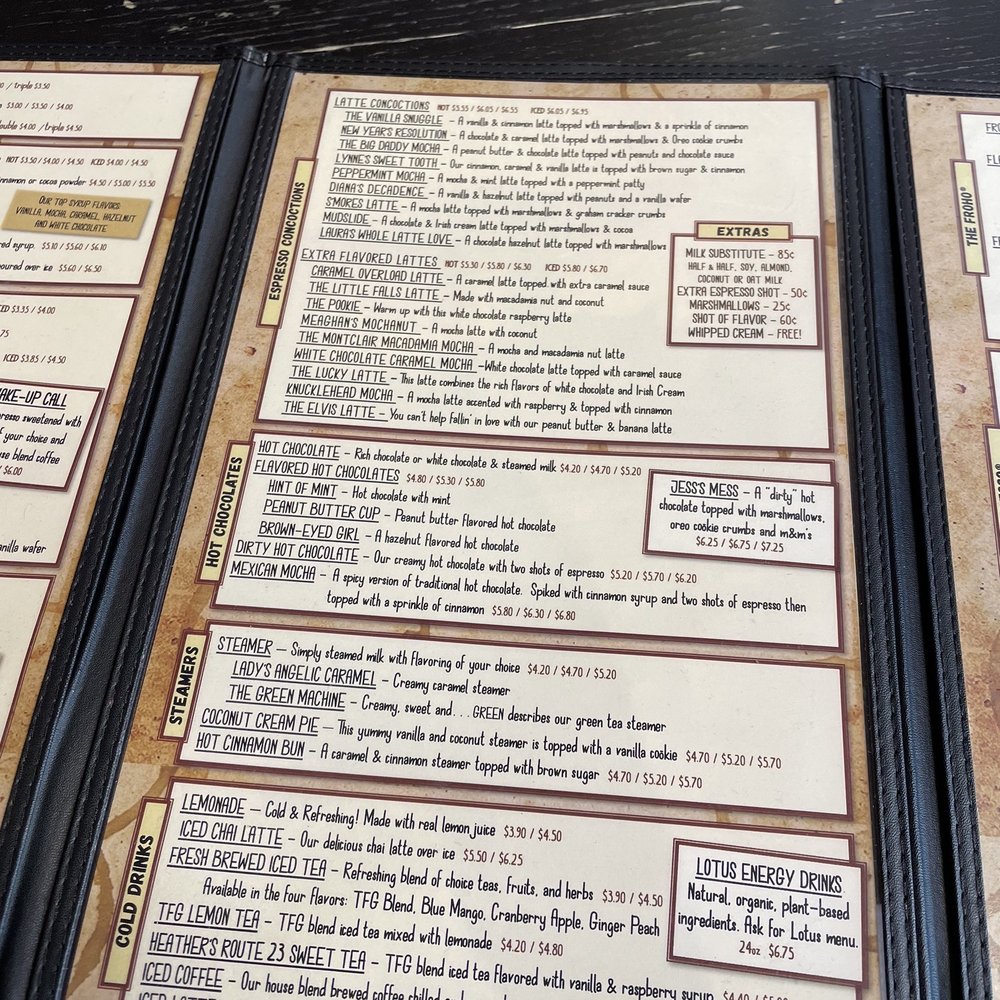 / triple $3.50
$3.00 / $3.50 / $4.00
ouble $4.00 / triple $4.50
HOT $3.50 / $4.00 / $4.50 ICED $4.00 / $4.50
nnamon or cocoa powder $4.50 / $5.00 / $5.50
OUR TOP SYRUP FLAVORS:
VANILLA, MOCHA, CARAMEL, HAZELNUT
AND WHITE CHOCOLATE
red syrup. $5.10 / $5.60 / $6.10
oured over ice $5.60 / $6.50
ED $3.35 / $4.00
ICED $3.85 / $4.50
AKE-UP CALL
presso sweetened with
f your choice and
use blend coffee
/ $6.00
anilla wafer
ESPRESSO CONCOCTIONS
LATTE CONCOCTIONS HOT $5.55 / $6.05 / $6.55 ICED $6.05 / $6.95
THE VANILLA SNUGGLE – A vanilla & cinnamon latte topped with marshmallows & a sprinkle of cinnamon
NEW YEAR'S RESOLUTION – A chocolate & caramel latte topped with marshmallows & Oreo cookie crumbs
THE BIG DADDY MOCHA – A peanut butter & chocolate latte topped with peanuts and chocolate sauce
LYNNE'S SWEET TOOTH – Our cinnamon, caramel & vanilla latte is topped with brown sugar & cinnamon
PEPPERMINT MOCHA – A mocha & mint latte topped with a peppermint patty
DIANA'S DECADENCE – A vanilla & hazelnut latte topped with peanuts and a vanilla wafer
S'MORES LATTE – A mocha latte topped with marshmallows & graham cracker crumbs
MUDSLIDE – A chocolate & Irish cream latte topped with marshmallows & cocoa
LAURA'S WHOLE LATTE LOVE – A chocolate hazelnut latte topped with marshmallows
EXTRA FLAVORED LATTES HOT $5.30 / $5.80 / $6.30 ICED $5.80 / $6.70
CARAMEL OVERLOAD LATTE – A caramel latte topped with extra caramel sauce
THE LITTLE FALLS LATTE – Made with macadamia nut and coconut
THE POOKIE – Warm up with this white chocolate raspberry latte
MEAGHAN'S MOCHANUT – A mocha latte with coconut
THE MONTCLAIR MACADAMIA MOCHA – A mocha and macadamia nut latte
WHITE CHOCOLATE CARAMEL MOCHA – White chocolate latte topped with caramel sauce
THE LUCKY LATTE – This latte combines the rich flavors of white chocolate and Irish Cream
KNUCKLEHEAD MOCHA – A mocha latte accented with raspberry & topped with cinnamon
THE ELVIS LATTE – You can't help fallin' in love with our peanut butter & banana latte
EXTRAS
MILK SUBSTITUTE – 85¢
HALF & HALF, SOY, ALMOND,
COCONUT OR OAT MILK
EXTRA ESPRESSO SHOT – 50¢
MARSHMALLOWS – 25¢
SHOT OF FLAVOR – 60¢
WHIPPED CREAM – FREE!
HOT CHOCOLATES
HOT CHOCOLATE – Rich chocolate or white chocolate & steamed milk $4.20 / $4.70 / $5.20
FLAVORED HOT CHOCOLATES $4.80 / $5.30 / $5.80
HINT OF MINT – Hot chocolate with mint
PEANUT BUTTER CUP – Peanut butter flavored hot chocolate
BROWN-EYED GIRL – A hazelnut flavored hot chocolate
DIRTY HOT CHOCOLATE – Our creamy hot chocolate with two shots of espresso $5.20 / $5.70 / $6.20
MEXICAN MOCHA – A spicy version of traditional hot chocolate. Spiked with cinnamon syrup and two shots of espresso then
topped with a sprinkle of cinnamon $5.80 / $6.30 / $6.80
JESS'S MESS – A "dirty" hot
chocolate topped with marshmallows,
oreo cookie crumbs and m&m's
$6.25 / $6.75 / $7.25
STEAMERS
STEAMER – Simply steamed milk with flavoring of your choice $4.20 / $4.70 / $5.20
LADY'S ANGELIC CARAMEL – Creamy caramel steamer
THE GREEN MACHINE – Creamy, sweet and... GREEN describes our green tea steamer
COCONUT CREAM PIE – This yummy vanilla and coconut steamer is topped with a vanilla cookie $4.70 / $5.20 / $5.70
HOT CINNAMON BUN – A caramel & cinnamon steamer topped with brown sugar $4.70 / $5.20 / $5.70
COLD DRINKS
LEMONADE – Cold & Refreshing! Made with real lemon juice $3.90 / $4.50
ICED CHAI LATTE – Our delicious chai latte over ice $5.50 / $6.25
FRESH BREWED ICED TEA – Refreshing blend of choice teas, fruits, and herbs $3.90 / $4.50
Available in the four flavors: TFG Blend, Blue Mango, Cranberry Apple, Ginger Peach
TFG LEMON TEA – TFG blend iced tea mixed with lemonade $4.20 / $4.80
HEATHER'S ROUTE 23 SWEET TEA – TFG blend iced tea flavored with vanilla & raspberry syrup
ICED COFFEE – Our house blend brewed coffee chilled
LOTUS ENERGY DRINKS
Natural, organic, plant-based
ingredients. Ask for Lotus menu.
24oz $6.75
THE FROHO®